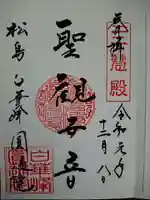 奉拝
令和元年
十二月八日
聖観世音
松島 白華峰 圓通院